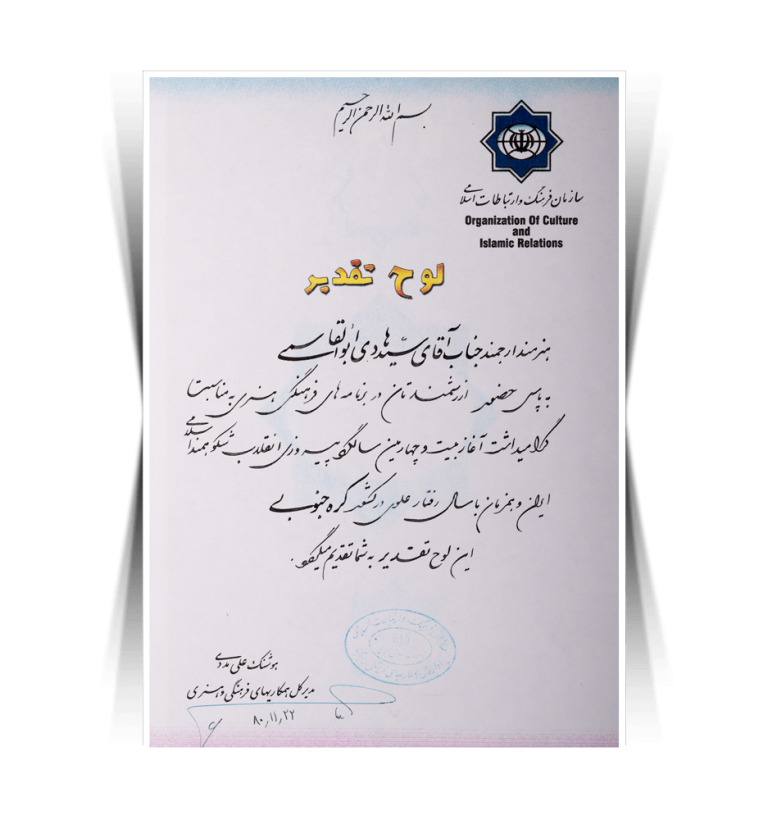 بسم الله الرحمن الرحیم
سازمان فرهنگ و ارتباطات اسلامی
Organization Of Culture
and
Islamic Relations
لوح تقدیر
هنرمند ارجمند جناب آقای سید هادی ابوالقاسمی
به پاس حضور ارزشمندتان در برنامه های فرهنگی هنری به مناسبت
گرامیداشت آغاز بیست و چهارمین سالگرد پیروزی انقلاب شکوهمند اسلامی
ایران و همزمان با سال رفتار علوی در کشور کره جنوبی
این لوح تقدیر به شما تقدیم میگردد.
هوشنگ علی مددی
مدیر کل همکاریهای فرهنگی و هنری
۸۰/۱۱/۲۲